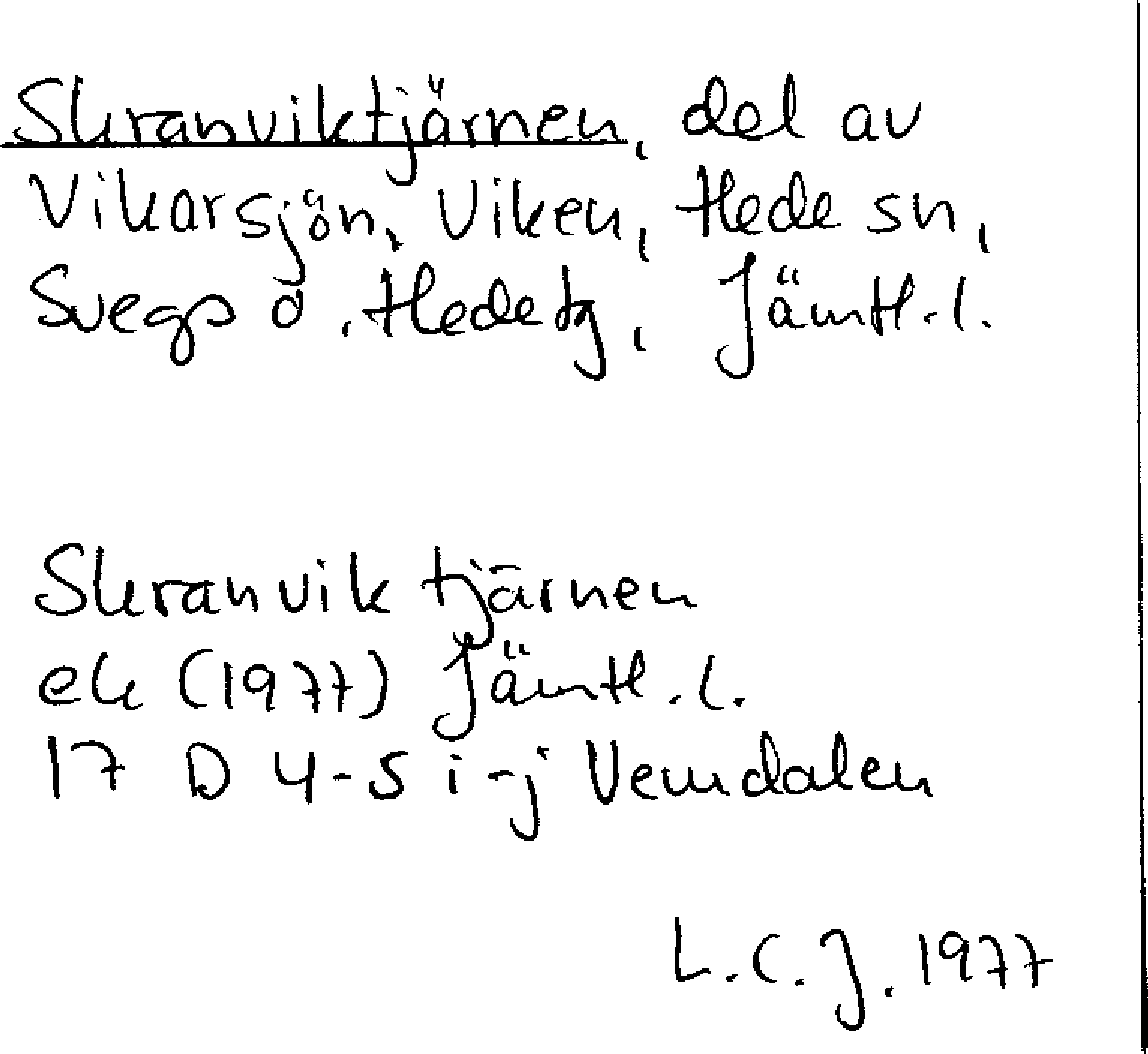 Skranviktjärnen, del av
Vikarsjön, Viken, Hede sn,
Svegs o. Hede tg, Jämtl. l.
Skranvik tjärnen
ek (1977) Jämtl. l.
17 D 4-5 i-j Vemdalen
L.C.J. 1977